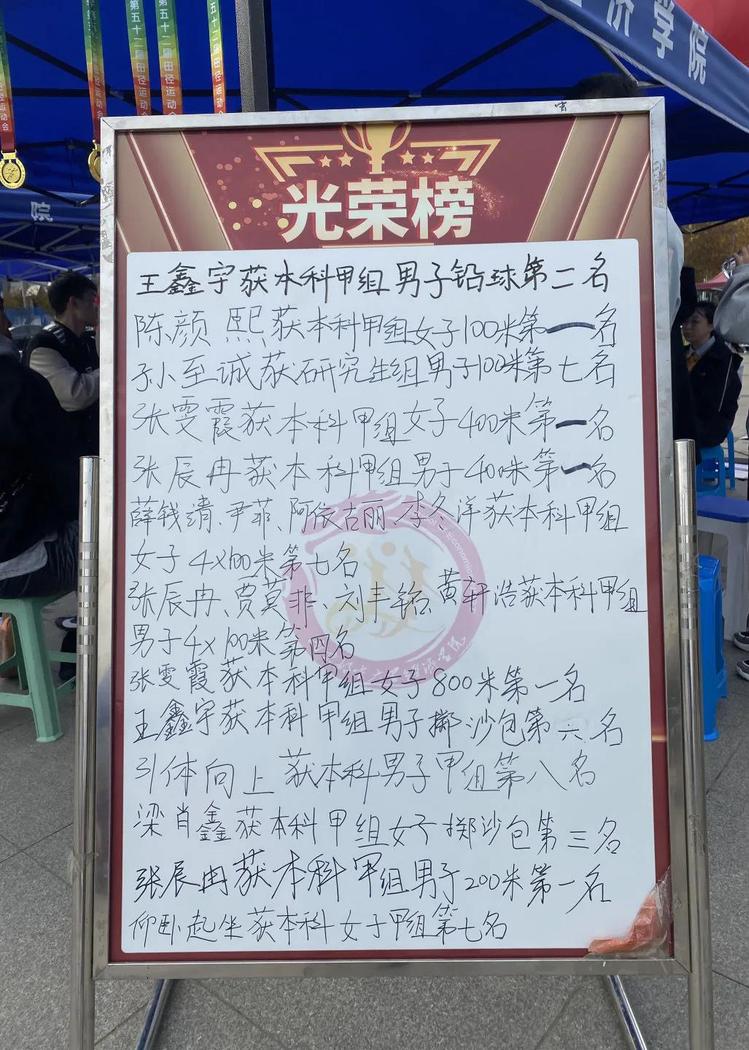 第五十二届田径运动会
第五十二届田径运动会
第五十二届田径运动会
济学院
院
光荣榜
王鑫宇获本科甲组男子铅球第二名
陈颜熙获本科甲组女子100米第一名
孙至诚获研究生组男子100米第七名
张雯霞获本科甲组女子400米第一名
张辰冉获本科甲组男子400米第一名
薛钱清、尹菲、阿依古丽、李冬洋获本科甲组
女子4×100米第七名
张辰冉、贾莫非、刘丰铭、黄轩浩获本科甲组
男子4×100米第四名
张雯霞获本科甲组女子800米第一名
王鑫宇获本科甲组男子掷沙包第六名
引体向上获本科男子甲组第八名
梁肖鑫获本科甲组女子掷沙包第三名
张辰冉获本科甲组男子200米第一名
仰卧起坐获本科女子甲组第七名